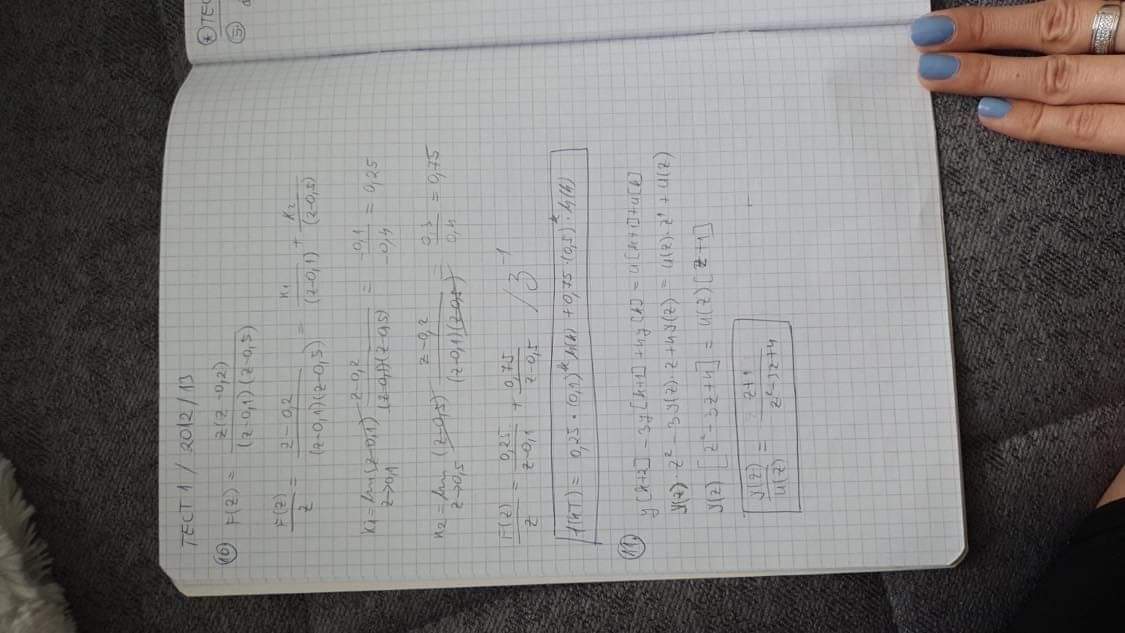 ТЕСТ 1 / 2012/13
10 F(z) = z(z-0,2) / (z-0,1)(z-0,5)
F(z)/z = z-0,2 / (z-0,1)(z-0,5) = K1/(z-0,1) + K2/(z-0,5)
K1 = lim z→0,1 (z-0,1) z-0,2 / (z-0,1)(z-0,5) = -0,1/-0,4 = 0,25
K2 = lim z→0,5 (z-0,5) z-0,2 / (z-0,1)(z-0,5) = 0,3/0,4 = 0,75
F(z)/z = 0,25/z-0,1 + 0,75/z-0,5 / Z⁻¹
f(kT) = 0,25·(0,1)ᵏ h(k) + 0,75·(0,5)ᵏ·h(k)
11. y[k+2] - 3y[k+1] + 4y[k] = u[k+1] + u[k]
y(z)·z² - 3y(z)·z + 4y(z) = u(z)·z¹ + u(z)
y(z) [z² - 3z + 4] = u(z) [z+1]
y(z)/u(z) = z+1 / z²-3z+4
* ТЕС